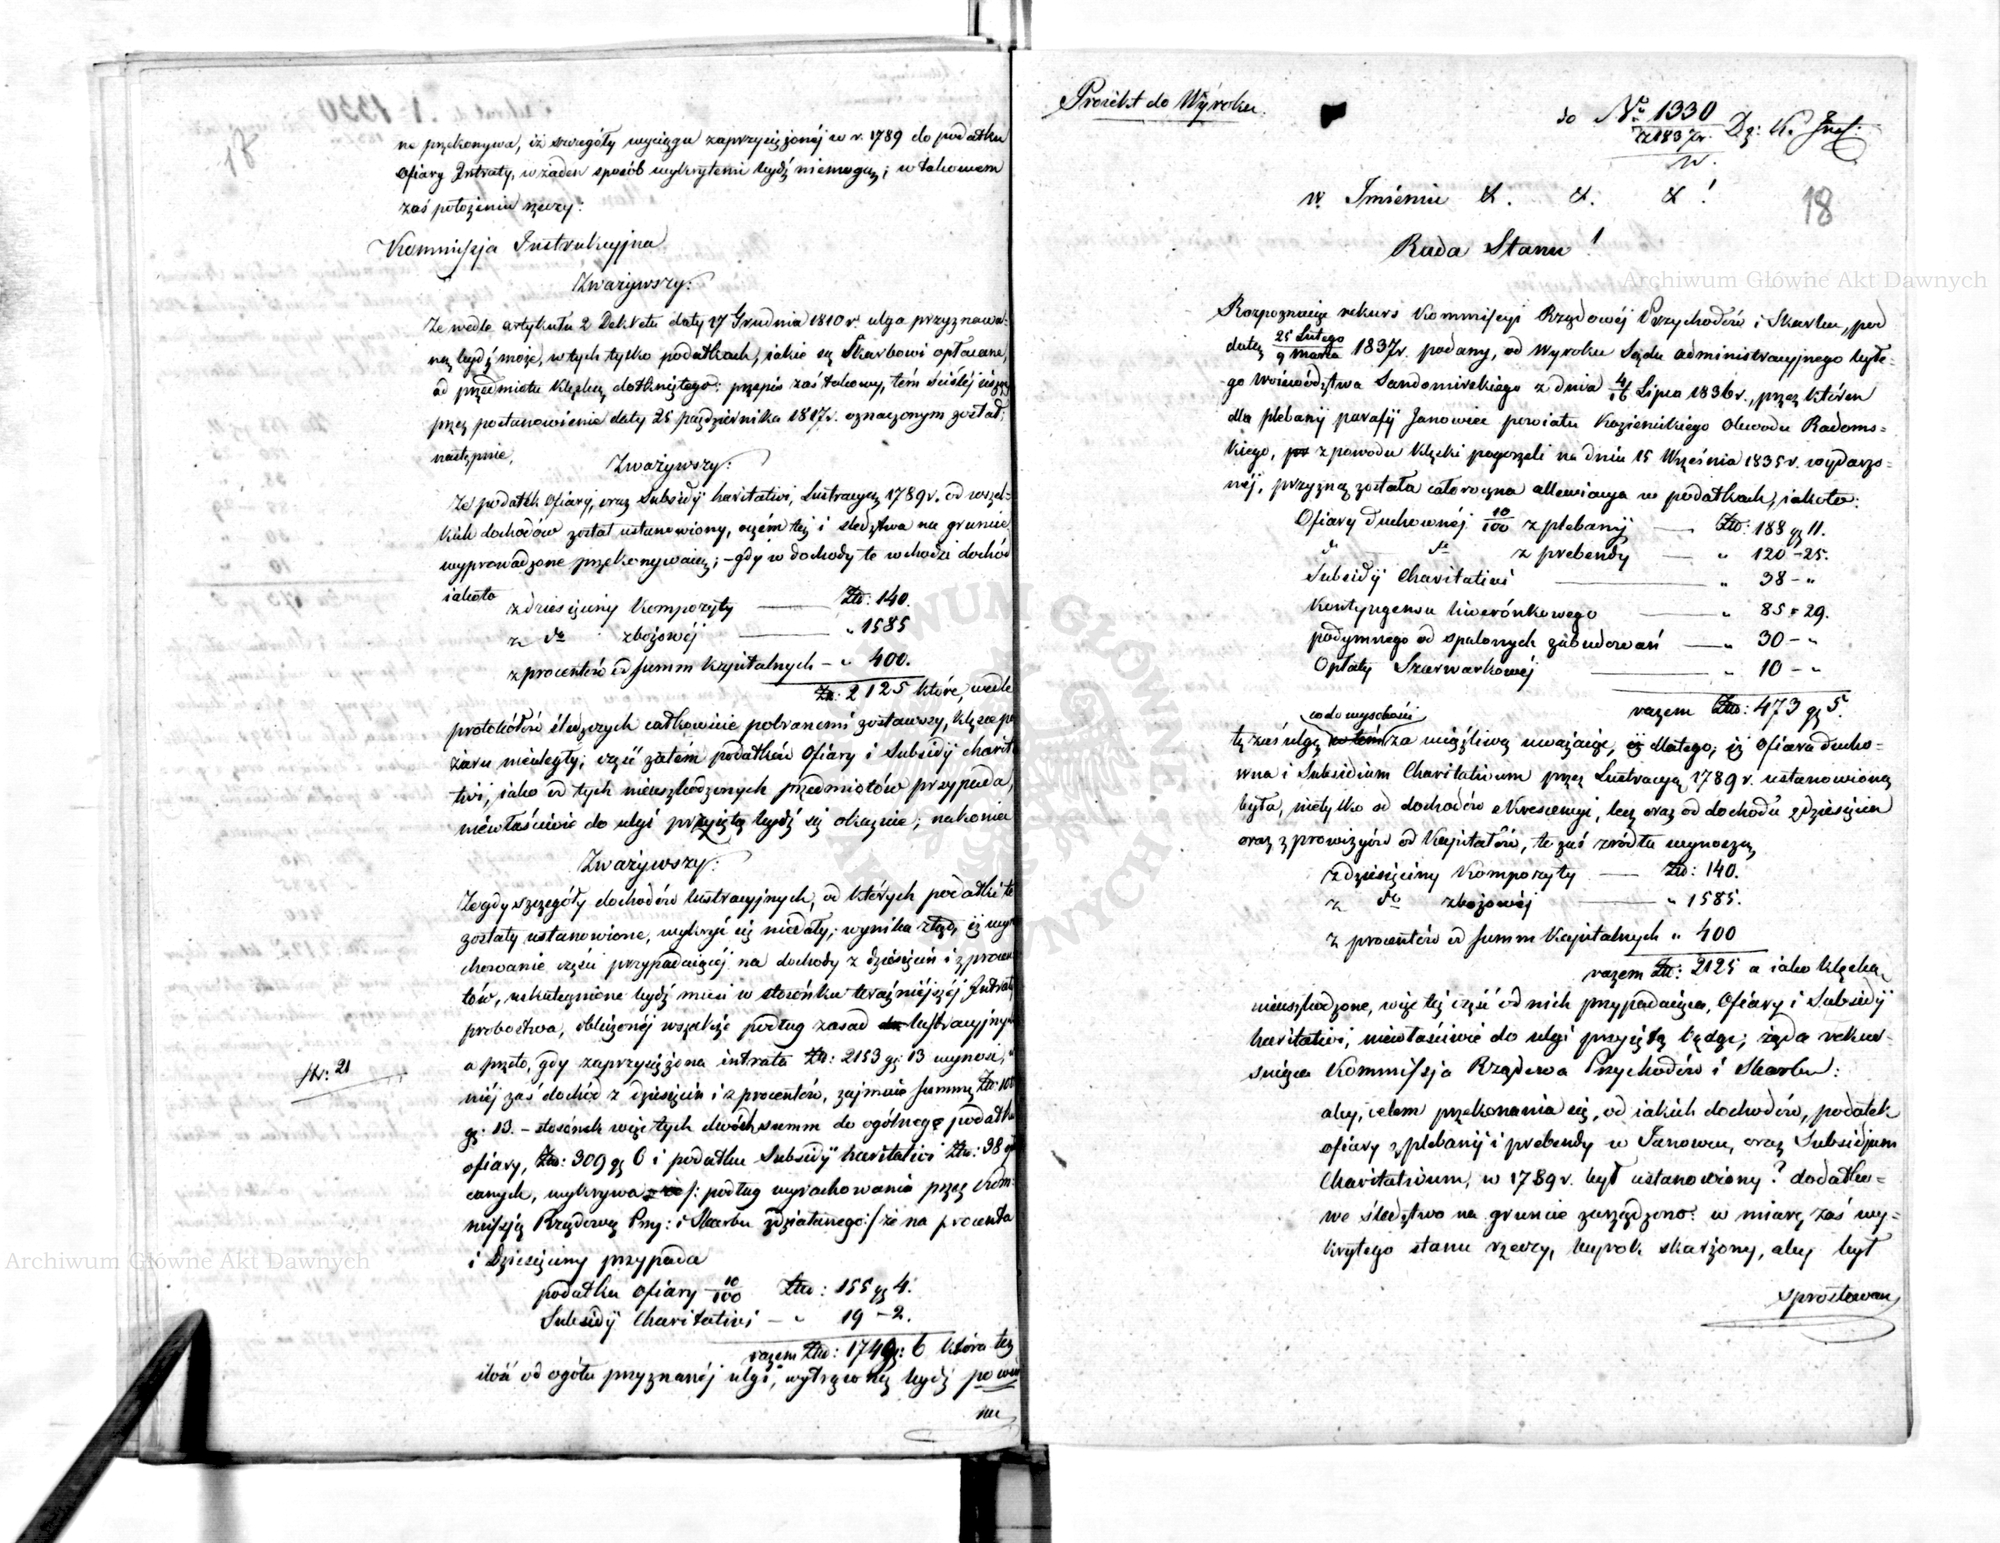 ne przekonywa, iż szczegóły wyciągu zaprzysiężonéj w r. 1789 do podatku
Ofiary Intraty, w żaden sposób wykrytemi bydź niemogą; w takowem
zaś położeniu rzeczy:
Kommissja Instrukcyjna
Zważywszy:
Że wedle artykułu 2 Dekretu daty 17 Grudnia 1810 r. ulga przyznawa-
ną bydź może, w tych tylko podatkach, jakie są Skarbowi opłacane,
od przedmiotu klęską dotkniętego: przepis zaś takowy, tém ściśléj
przez postanowienie daty 25 października 1817 r. oznaczonym został,
następnie,
Zważywszy:
Że podatek Ofiary, oraz Subsidÿ haritativi, Lustracyą 1789 r. od wszel-
kich dochodów został ustanowiony, o czém też i śledztwa na gruncie
wyprowadzone przekonywaią; – gdy w dochody te wchodzi dochód
iakoto
z dziesięciny Kompozyty — Złp: 140.
z do zbożowéj — „ 1585
z procentów od summ kapitalnych – „ 400.
Zł: 2125 które, wedle
protokółów śledczych całkowicie pobranemi zostawszy, klęsce po
żaru nieuległy; część zatém podatków Ofiary i Subsidÿ charita
tivi, iako od tych nieuszkodzonych przedmiotów przypada,
niewłaściwie do ulgi przyiętą bydź się okazuie; nakoniec
Zważywszy:
Że gdy szczegóły dochodów lustracyjnych, od których podatki te
zostały ustanowione, wykryć się niedały; wynika ztąd, iż wyra
chowanie części przypadaiącéj na dochody z dziesięcin i z procen
tów, uskutecznione bydź musi w stosónku teraźniejszéj Intraty
probostwa, obliczonéj wszakże podług zasad lustracyjnych
a przeto, gdy zaprzysiężona intrata Złp: 2153 gr 13 wynosi,
niéj zaś dochód z dziesięcin i z procentów, zajmuie summę Złp:
gr: 13. – stosónek więc tych dwóch summ do ogólnego podatku
ofiary, Złp: 309 gr 6 i podatku Subsidÿ haritativi Złp: 38
canych, wykrywa /: podług wyrachowania przez Kom-
missją Rządową Przy: i Skarbu zdziałanego :/ że na procenta
i Dziesięciny przypada
podatku Ofiary 10/100 Złp: 155 gr 4.
Subsidÿ Charitativi – „ 19 – 2.
razem Złp: 174 gr: 6 która też
ilość od ogółu przyznanéj ulgi, wytrąconą bydź powin
na
Str: 21
Proiekt do Wyroku.
do Nr 1330
z 1837 r.
18
w Imieniu &. &. &!
Rada Stanu!
Rozpoznaiąc rekurs Kommissyi Rządowéj Przychodów i Skarbu, pod
datą 25 Lutego/9 Marca 1837 r. podany, od Wyroku Sądu administracyjnego byłe-
go Wojewódstwa Sandomirskiego z dnia 4/16 Lipca 1836 r., przez którén
dla plebanÿ parafÿ Janowiec powiatu Kozienickiego Obwodu Radoms-
kiego, z powodu klęski pogorzeli na dniu 15 Września 1835 r. wydarzo-
néj, przyzną została całoroczna allewiacya w podatkach, iakoto:
Ofiary duchownéj 10/100 z plebanÿ — Złp: 188 gr 11.
do do z prebendy — „ 120 – 25.
Subsidÿ Charitativi — „ 38 – „
Kontyngensu liwerónkowego — „ 85 – 29.
podymnego od spalonych zabudowań — „ 30 – „
Opłaty Szarwarkowéj — „ 10 – „
razem Złp: 473 gr 5.
co do wysokości
tę zaś ulgę za uciążliwą uważaiąc, dlatego, iż Ofiara ducho-
wna i Subsidium Charitativum przez Lustracyą 1789 r. ustanowioną
była, nietylko od dochodów z Krescencyi, lecz oraz od dochodu z dziesięcin
oraz z prowizyów od Kapitałów, te zaś źródła wynoszą,
z dziesięciny Kompozyty — Złp: 140.
z do zbożowéj — „ 1585.
z procentów od summ Kapitalnych „ 400
razem Złp: 2125 a iako klęską
nieuszkodzone, więc też część od nich przypadaiąca, Ofiary i Subsidÿ
haritativi, niewłaściwie do ulgi przyiętą będąc; żąda rekur-
suiąca Kommissja Rządowa Przychodów i Skarbu:
aby, celem przekonania się, od iakich dochodów, podatek
ofiary z plebanÿ i prebendy w Janowcu, oraz Subsidjum
Charitativum, w 1789 r. był ustanowiony? dodatko-
we śledztwo na gruncie zarządzono: w miarę zaś wy-
krytego stanu rzeczy, wyrok skarżony, aby był
sprostowan